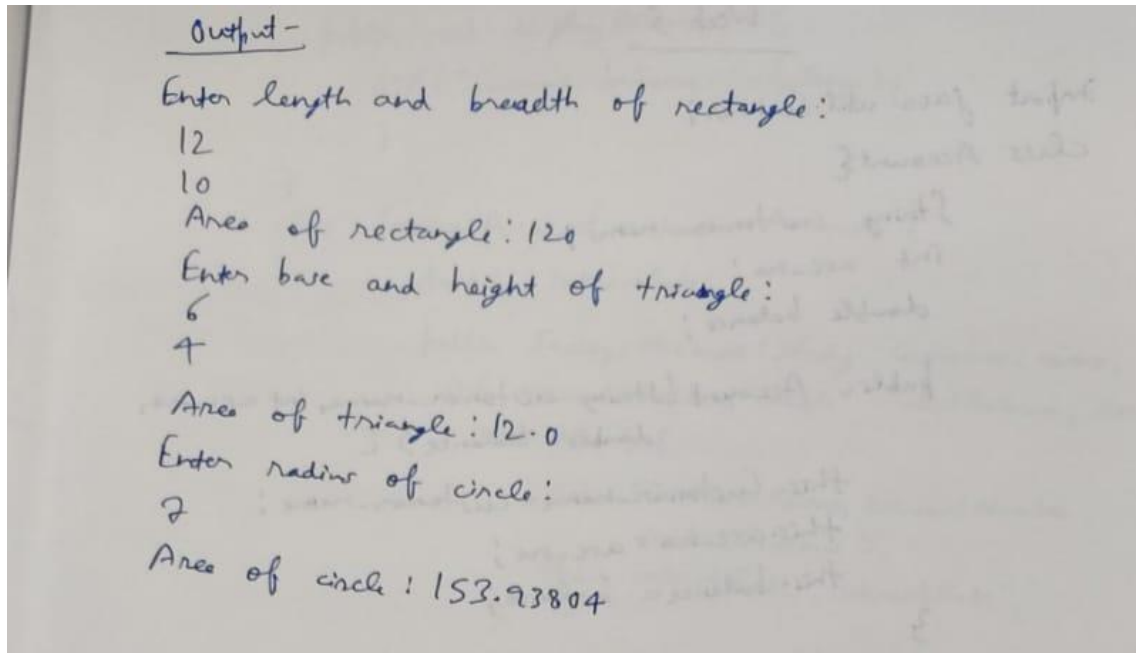 Output -
Enter length and breadth of rectangle:
12
10
Area of rectangle: 120
Enter base and height of triangle:
6
4
Area of triangle: 12.0
Enter radius of circle:
7
Area of circle: 153.93804